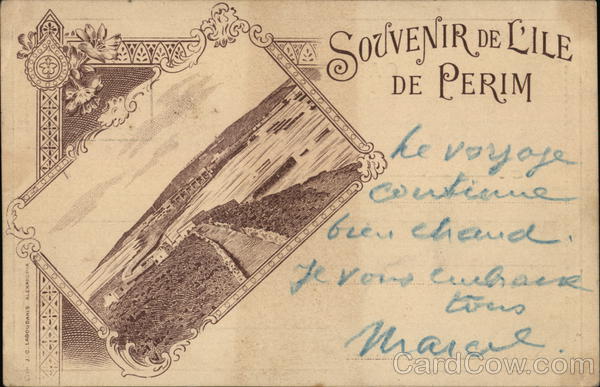 SOUVENIR DE L'ILE
DE PERIM
Le voyage
continue
bien chaud.
Je vous embrasse
tous
Marcel.
J. C. LAGOUDAKIS ALEXANDRIA
CardCow.com